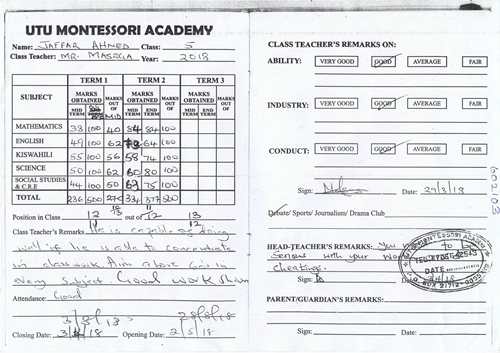 UTU MONTESSORI ACADEMY
Name: JAFFAR AHMED Class: 5
Class Teacher: MR. MASEGA Year: 2018
TERM 1 TERM 2 TERM 3
SUBJECT MARKS OBTAINED MARKS OUT OF MARKS OBTAINED MARKS OUT OF MARKS OBTAINED MARKS OUT OF
MID TERM MID MID TERM END TERM MID TERM END TERM
MATHEMATICS 38 100 40 84 84 100
ENGLISH 49 100 62 64 100
KISWAHILI 55 100 56 58 74 100
SCIENCE 50 100 62 60 80 100
SOCIAL STUDIES & C.R.E 44 100 50 75 100
TOTAL 236 500 334 377 500
Position in Class 12 out of 12 13
Class Teacher's Remarks He is capable of doing
well if he is able to concentrate
in classwork. Aim above
every subject. Good work shown
Attendance: Good
Closing Date: Opening Date: 2/5/18
CLASS TEACHER'S REMARKS ON:
ABILITY: VERY GOOD GOOD AVERAGE FAIR
INDUSTRY: VERY GOOD GOOD AVERAGE FAIR
CONDUCT: VERY GOOD GOOD AVERAGE FAIR
Sign: Date: 29/3/18
Debate/ Sports/ Journalism/ Drama Club
HEAD-TEACHER'S REMARKS: You to be
Serious with your work
cheating.
Sign: Date: /4/18
MONTESSORI ACADEMY
DATE
BOX 21712
PARENT/GUARDIAN'S REMARKS:
Sign: Date:
602103